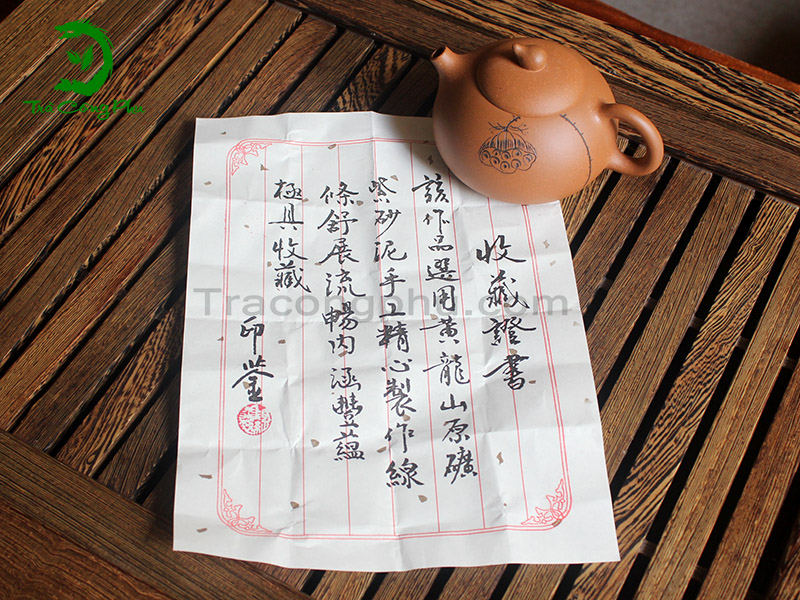 Trà Công Phu
收藏證書
該作品選用黃龍山原礦
紫砂泥手工精心製作線
條舒展流暢內涵豐蘊
極具收藏
印鑒
Tracongphu.com